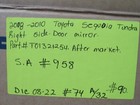 2008-2010 Toyota Sequoia Tundra
Right side Door mirror
Part# TO1321254. After market.
S.A #958
Die 08-22 #74 A/32 #90